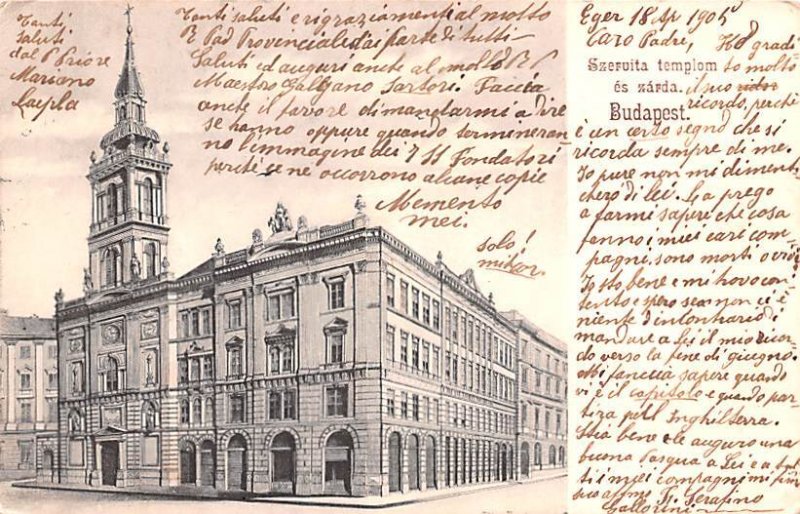 Tanti
saluti
dal P Priore
Mariano
Tanti saluti e rigraziamenti al molto
R Pad Provinciale dai parte di tutti
Saluti ed auguri anche al molto R P
Maestro Galgano Sartori. Faccia
anche il favore di mandarmi a dire
se hanno oppure quando ne
no l'immagine dei 7 SS Fondatori
perchè ce ne occorrono alcune copie
Memento
mei.
solo!
Eger 18 Ap 1905
Caro Padre, Ho gradi-
Szervita templom
to molto
és zárda.
il suo
Budapest.
ricordo, perchè
è un certo segno che si
ricorda sempre di me.
Io pure non mi dimenti
cherò di lei. La prego
a farmi sapere che cosa
fanno i miei cari com-
pagni, sono morti o vivi
Io sto bene e mi trovo con-
tento e spero se non ci è
niente d'incontrario di
mandare a Lei il mio ricor-
do verso la fine di giugno.
Mi faccia sapere quando
vi è il capitolo e quando par-
tiza pell Inghilterra.
Stia bene e le auguro una
buona Pasqua a Lei e a tut
ti i miei compagni mi
suo affmo Fr. Serafino